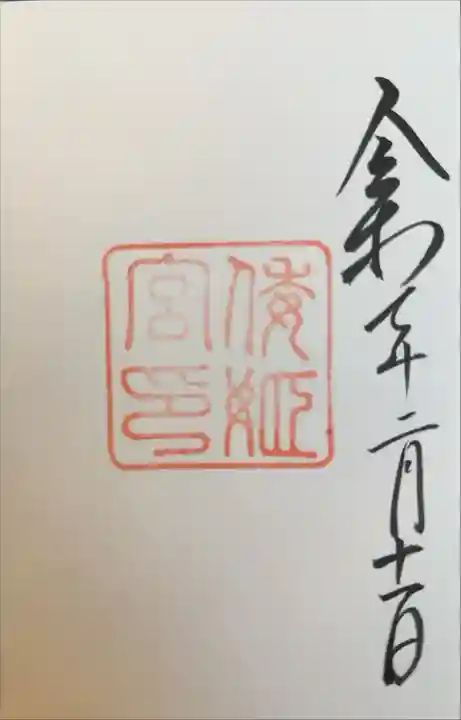 令和七年二月十一日
倭姫
宮印